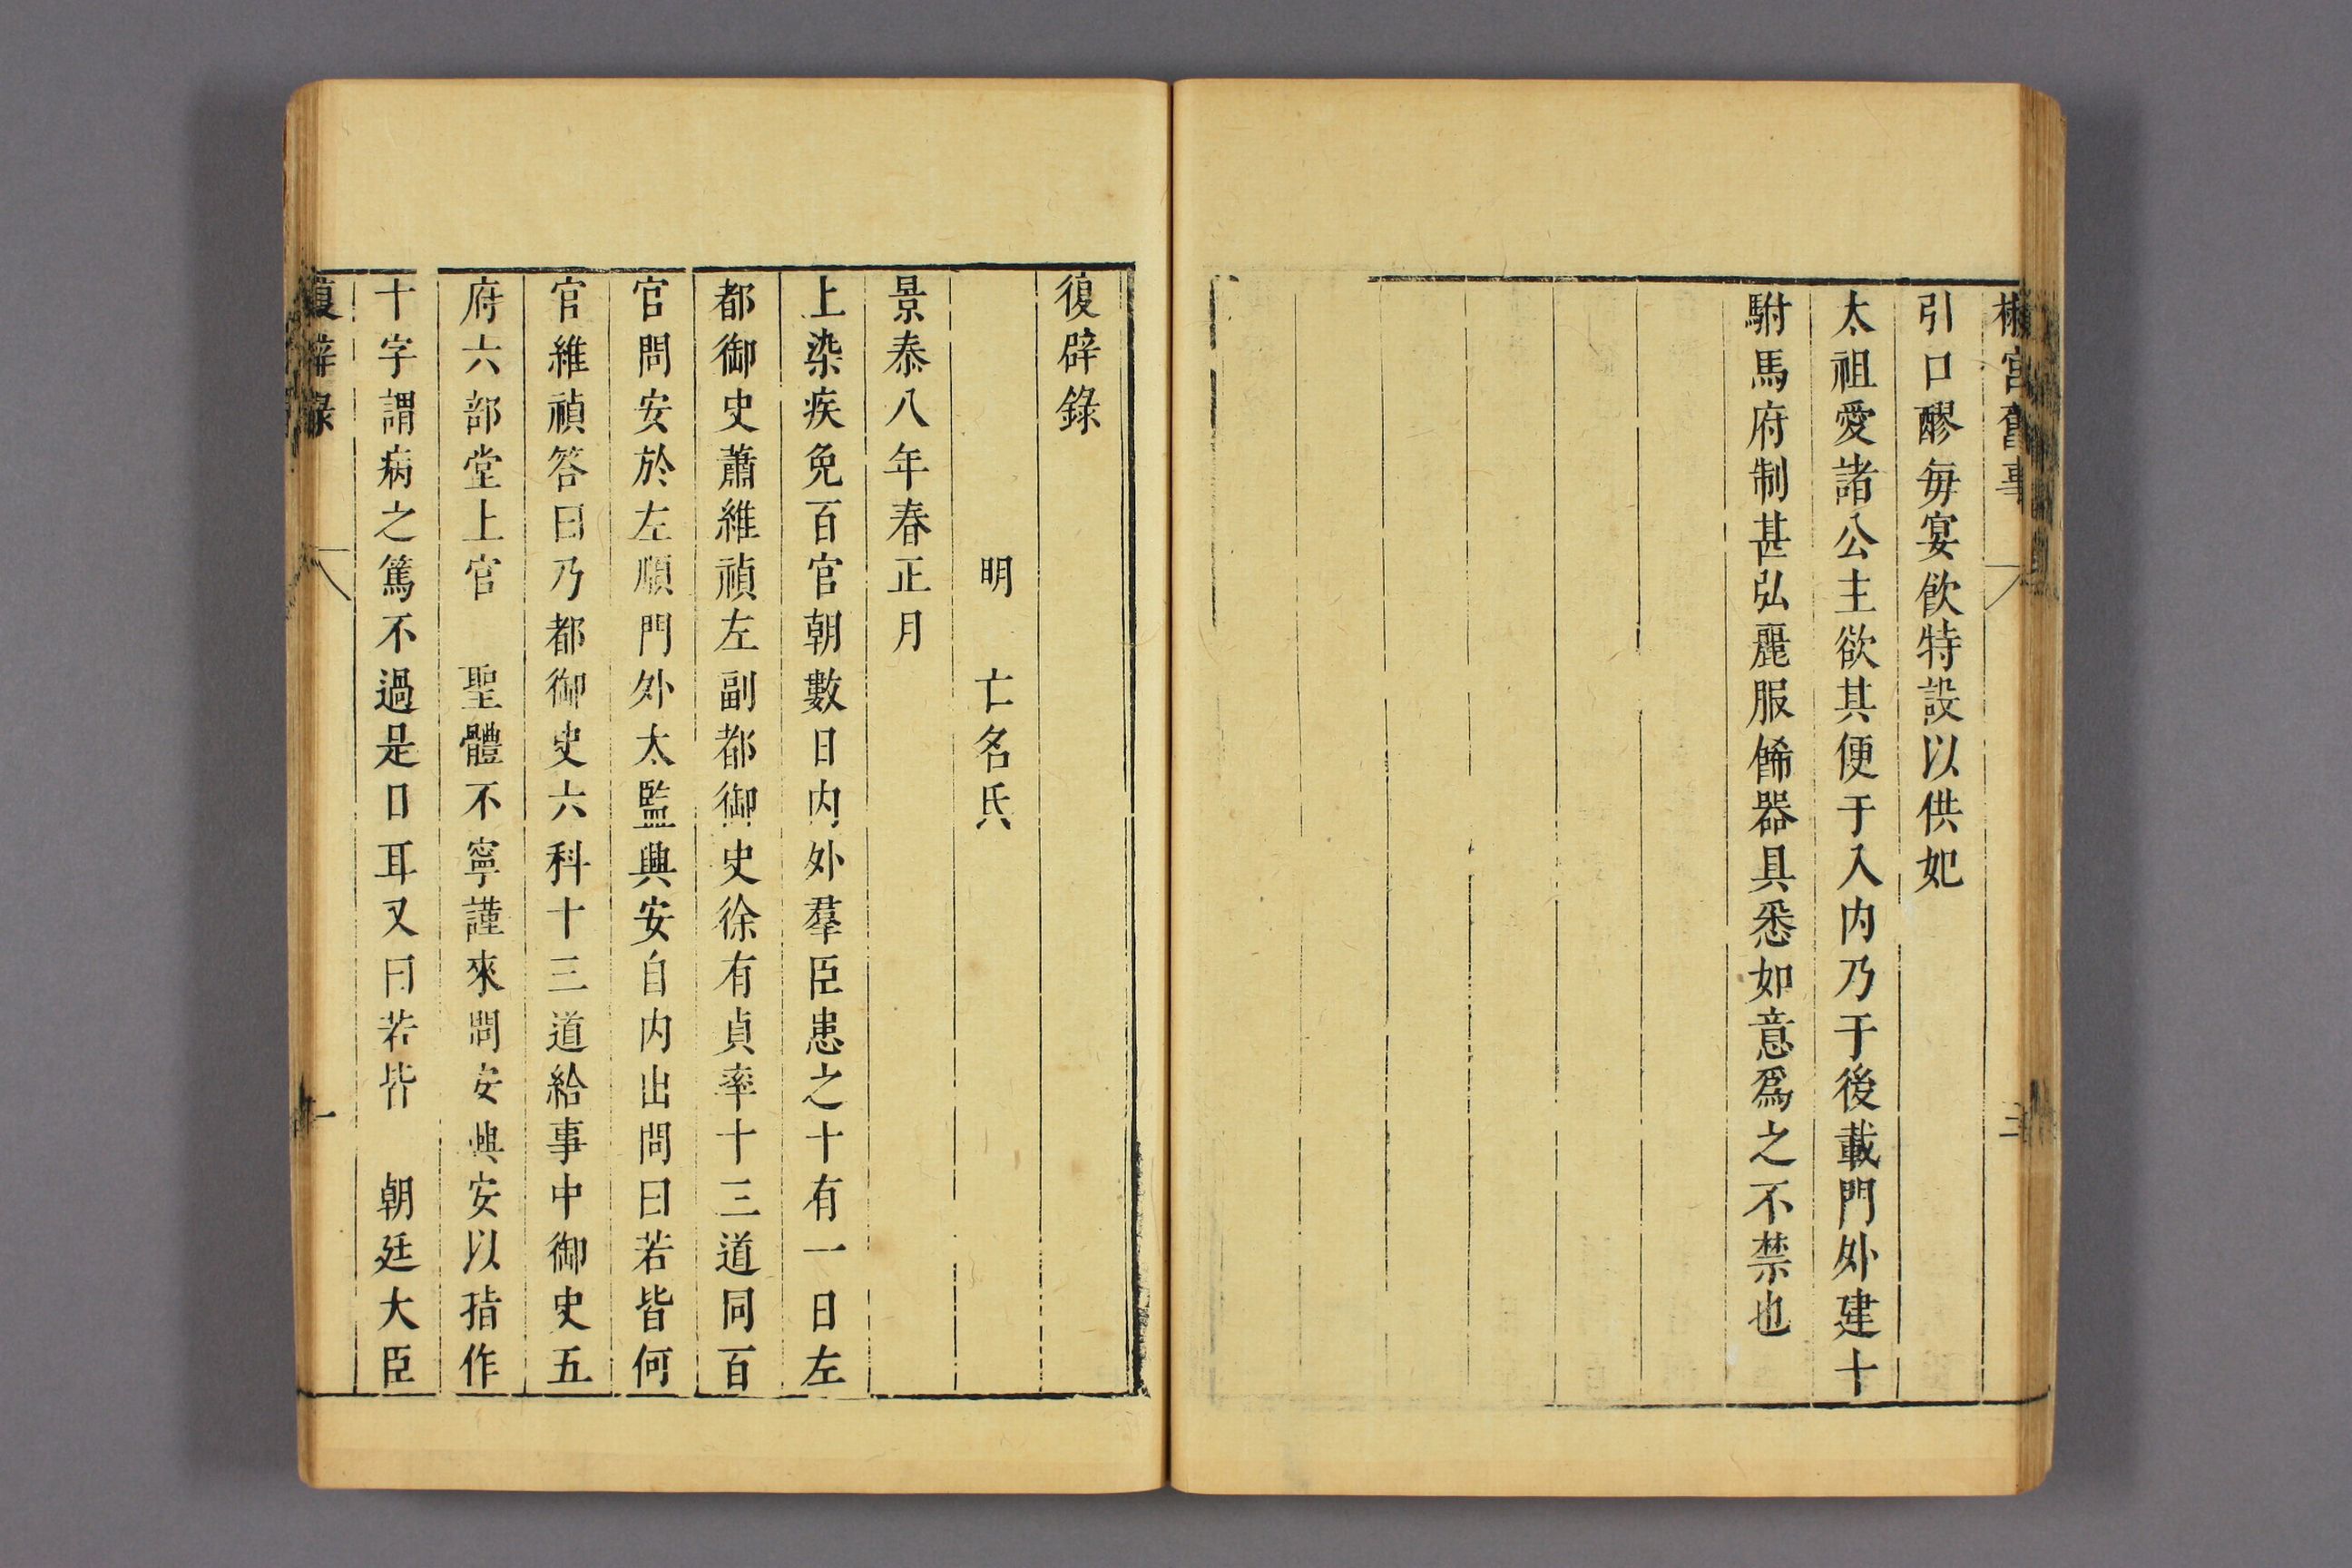 椒宮舊事
三
引口醪每宴飲特設以供妃
太祖愛諸公主欲其便于入内乃于後載門外建十
駙馬府制甚弘麗服餙器具悉如意爲之不禁也
復辟錄
明　亡名氏
景泰八年春正月
上染疾免百官朝數日内外羣臣患之十有一日左
都御史蕭維禎左副都御史徐有貞率十三道同百
官問安於左順門外太監興安自内出問曰若皆何
官維禎答曰乃都御史六科十三道給事中御史五
府六部堂上官　聖體不寧謹來問安興安以指作
十字謂病之篤不過是日耳又曰若皆　朝廷大臣
復辟錄
一